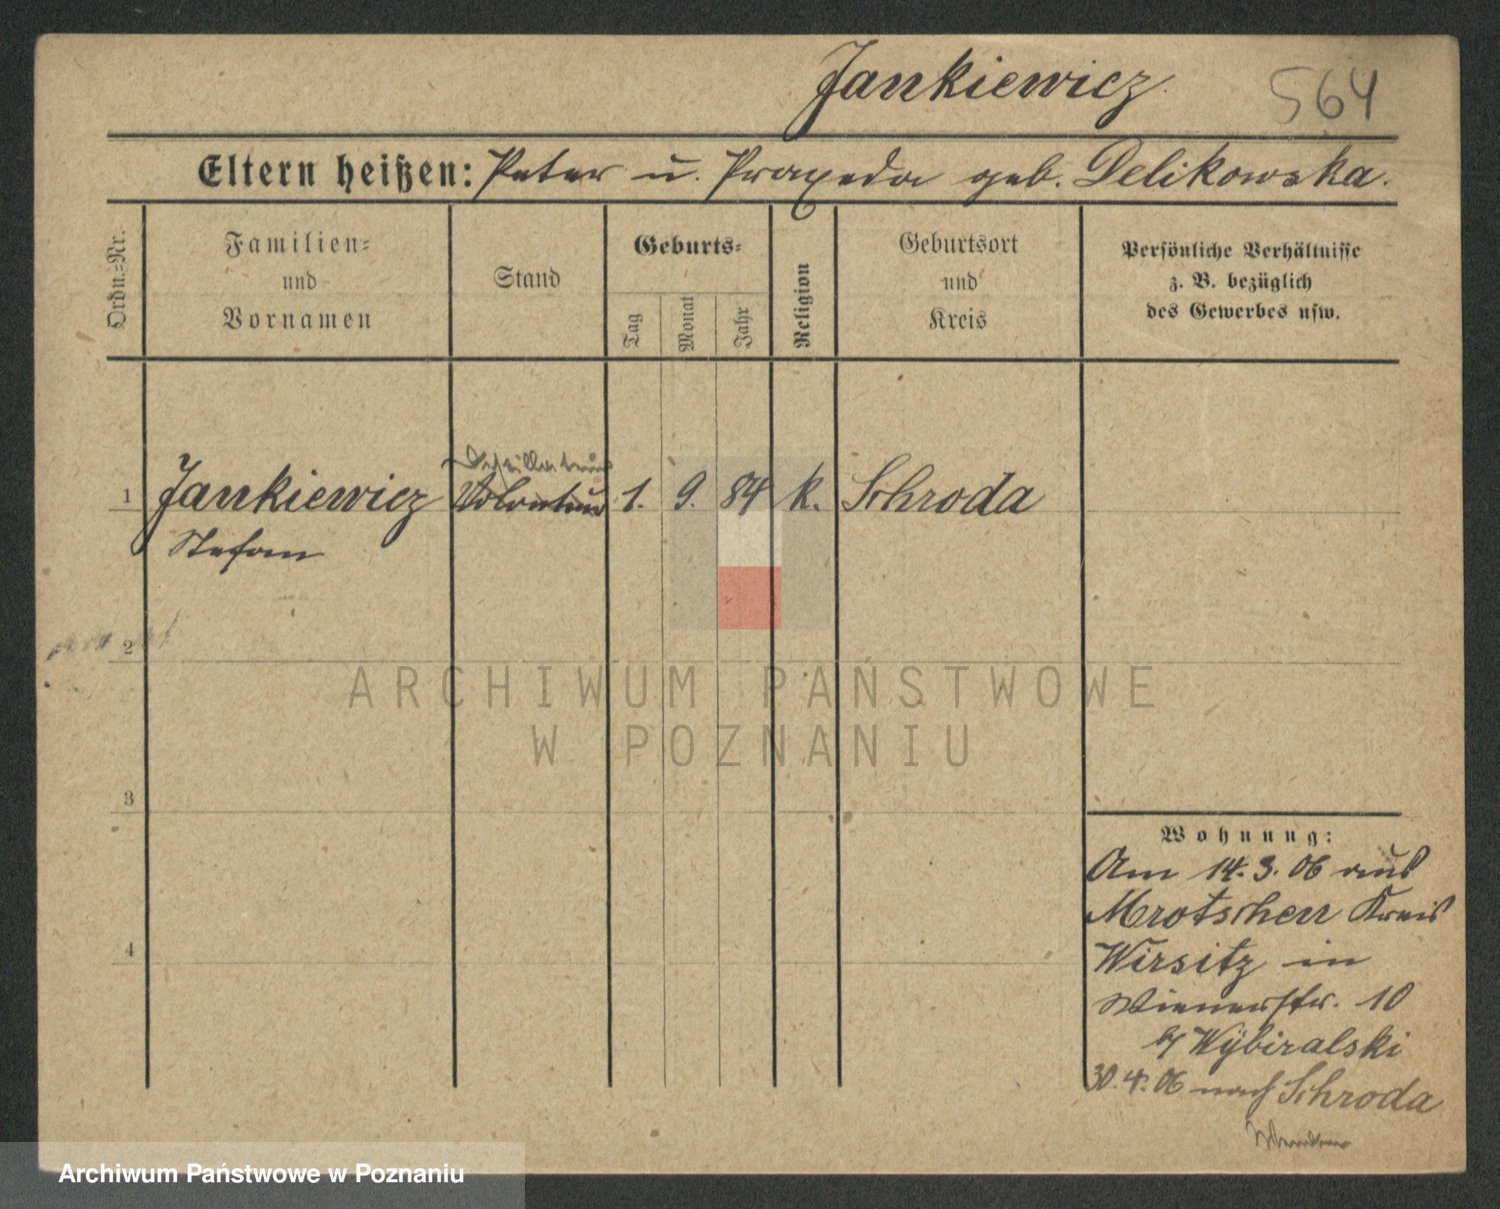 Jankiewicz
564
Eltern heißen: Peter u. Praxeda geb. Delikowska.
Ordn.-Nr.
Familien-
und
Vornamen
Stand
Geburts-
Tag
Monat
Jahr
Religion
Geburtsort
und
Kreis
Persönliche Verhältnisse
z. B. bezüglich
des Gewerbes usw.
Destillateur
1 Jankiewicz Volontär 1. 9. 84 k. Schroda
Stefan
2
3
4
Wohnung:
Am 14.3.06 aus
Mrotschen Kreis
Wirsitz in
Wienerstr. 10
b/ Wybiralski
30.4.06 nach Schroda
ARCHIWUM PAŃSTWOWE
W POZNANIU
Archiwum Państwowe w Poznaniu